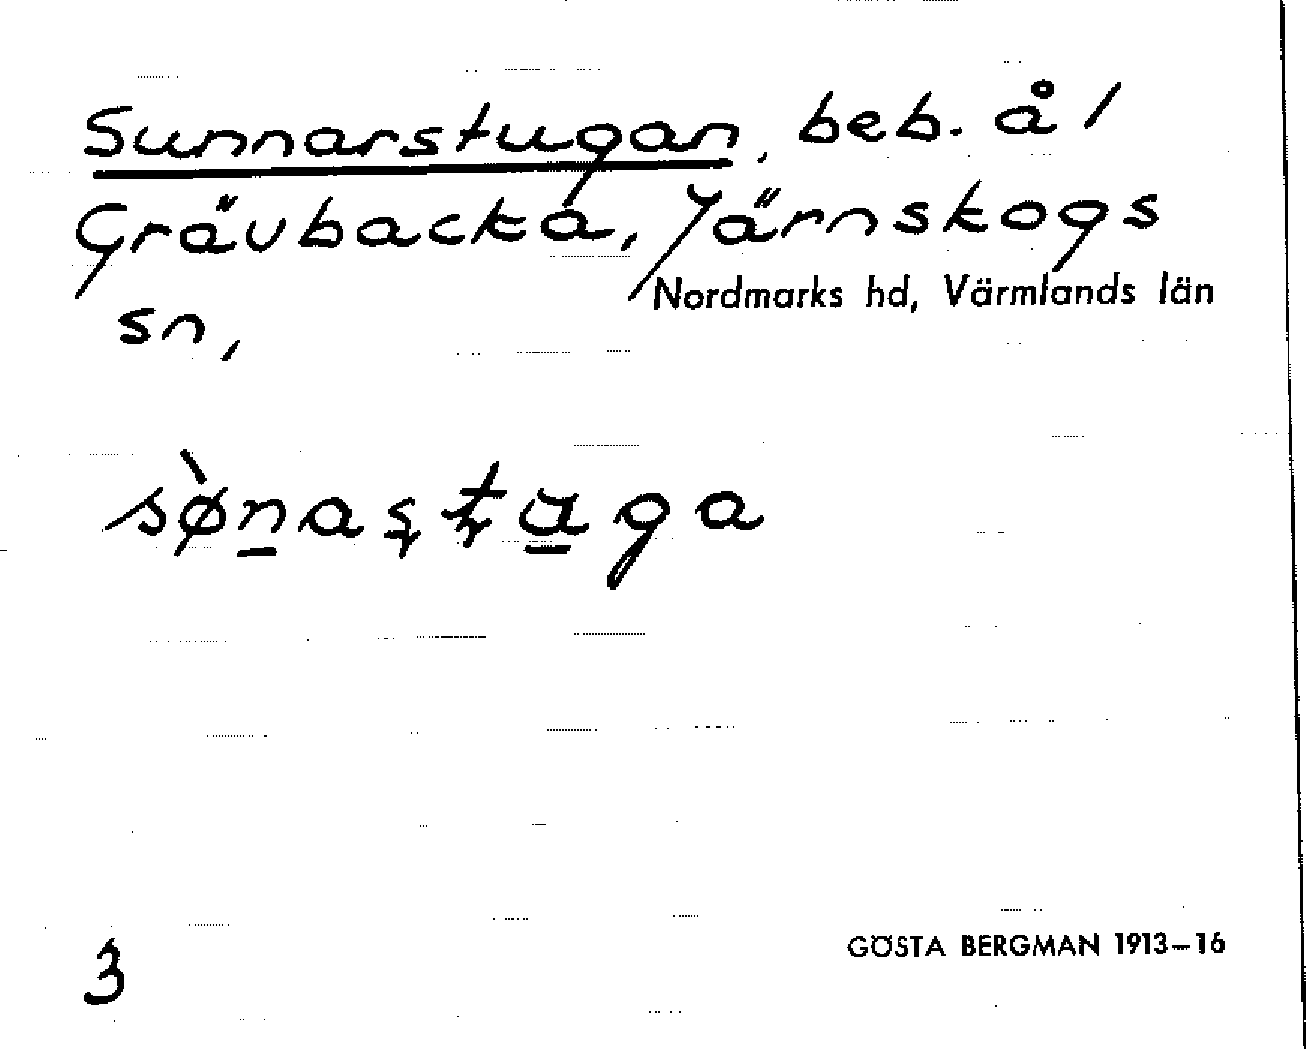 Sunnarstugan, beb. å 1
Grävbacka, Järnskogs
Nordmarks hd, Värmlands län
sn,
sø̀n̲astu̲ga
3
GÖSTA BERGMAN 1913–16